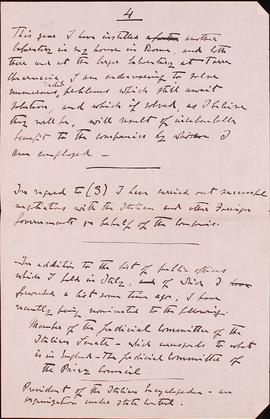 4
This year I have installed another
laboratory in my house in Rome, and both
there and at the larger laboratory at Torre
Chiaruccia, I am endeavouring to solve
numerous radio problems which still await
solution, and which if solved, as I believe
they will be, will result of incalculable
benefit to the companies by whom I
am employed -
In regard to (3) I have carried out successful
negotiations with the Italian and other Foreign
Governments on behalf of the companies.
In addition to the list of public offices
which I hold in Italy, and of which I
forwarded a list some time ago, I have
recently been nominated to the following:
Member of the Judicial Committee of the
Italian Senate - which corresponds to what
is in England - The Judicial Committee of
the Privy Council
President of the Italian Encyclopedia - an
organization under state control.